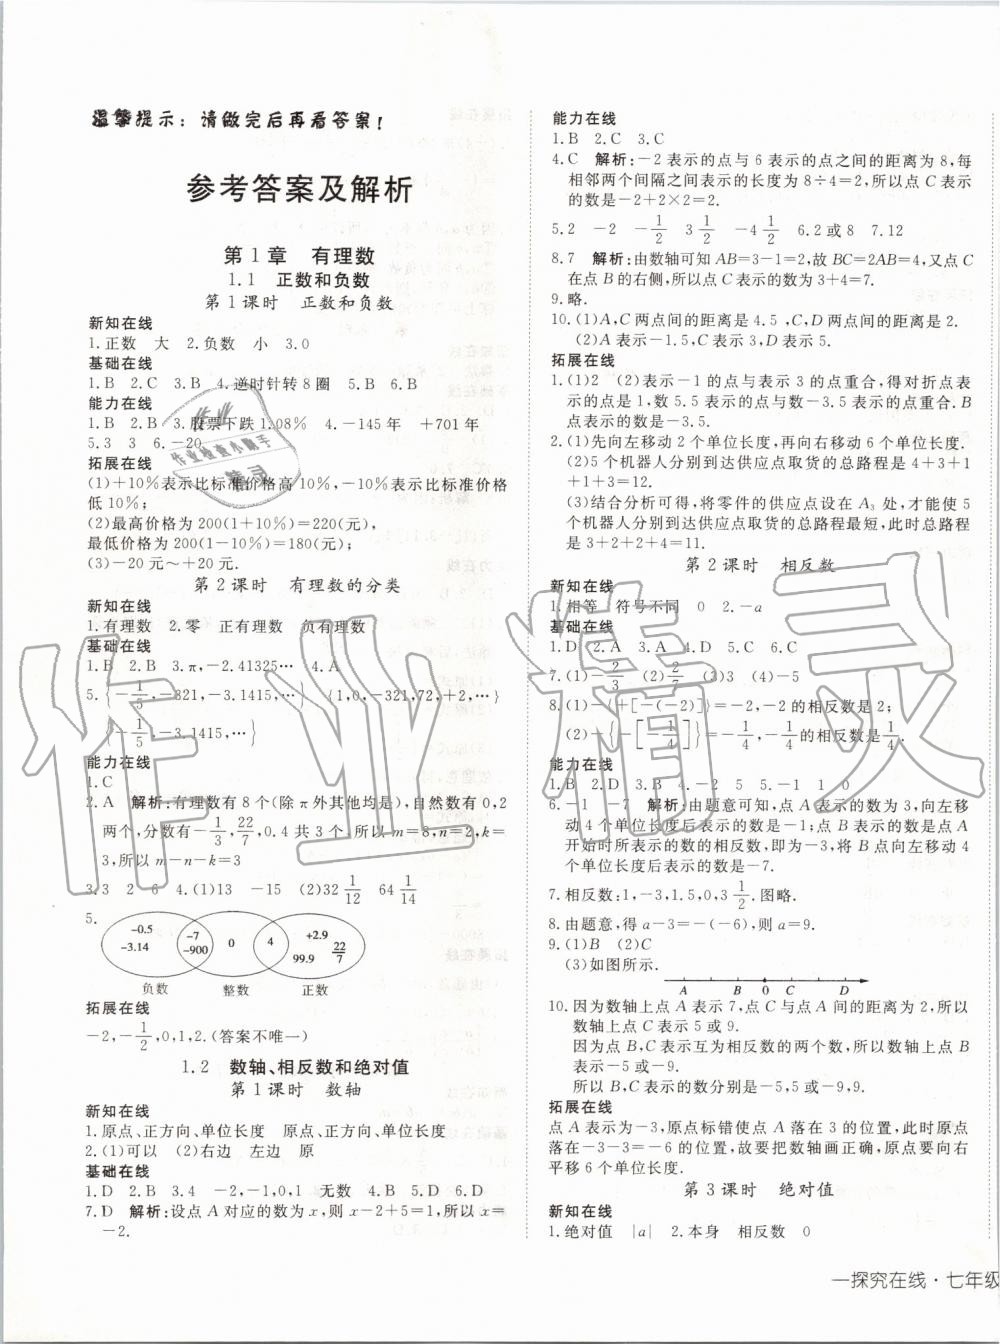 温馨提示：请做完后再看答案！
参考答案及解析
第1章　有理数
1.1　正数和负数
第1课时　正数和负数
新知在线
1.正数　大　2.负数　小　3.0
基础在线
1.B　2.C　3.B　4.逆时针转8圈　5.B　6.B
能力在线
1.B　2.B　3.股票下跌1.08%　4.－145年　＋701年
5.3　3　6.－20
拓展在线
(1)＋10%表示比标准价格高10%,－10%表示比标准价格
低10%;
(2)最高价格为200(1＋10%)＝220(元),
最低价格为200(1－10%)＝180(元);
(3)－20元～＋20元.
第2课时　有理数的分类
新知在线
1.有理数　2.零　正有理数　负有理数
基础在线
1.B　2.B　3.π,－2.41325…　4.A
5.{－1/5,－321,－3.1415,…}　{1,0,－321,72,＋2,…}
{－1/5,－3.1415,…}
能力在线
1.C
2.A　解析:有理数有8个(除π外其他均是),自然数有0,2
两个,分数有－1/3,22/7,0.4共3个.所以m＝8,n＝2,k＝
3,所以m－n－k＝3
3.3　2　6　4.(1)13　－15　(2)32 1/12　64 1/14
5.
-0.5
-3.14
-7
-900
0
4
+2.9
99.9
22/7
负数　整数　正数
拓展在线
－2,－1/2,0,1,2.(答案不唯一)
1.2　数轴、相反数和绝对值
第1课时　数轴
新知在线
1.原点、正方向、单位长度　原点、正方向、单位长度
2.(1)可以　(2)右边　左边　原
基础在线
1.D　2.B　3.4　－2,－1,0,1　无数　4.B　5.D　6.D
7.D　解析:设点A对应的数为x,则x－2＋5＝1,所以x＝
－2.
能力在线
1.B　2.C　3.C
4.C　解析:－2表示的点与6表示的点之间的距离为8,每
相邻两个间隔之间表示的长度为8÷4＝2,所以点C表示
的数是－2＋2×2＝2.
5.2　－2　－1/2　3 1/2　－4 1/2　6.2或8　7.12
8.7　解析:由数轴可知AB＝3－1＝2,故BC＝2AB＝4,又点C
在点B的右侧,所以点C表示的数为3＋4＝7.
9.略.
10.(1)A,C两点间的距离是4.5,C,D两点间的距离是2.
(2)A表示－1.5,C表示3,D表示5.
拓展在线
1.(1)2　(2)表示－1的点与表示3的点重合,得对折点表
示的点是1,数5.5表示的点与表示－3.5的点重合.B
点表示的数是－3.5.
2.(1)先向左移动2个单位长度,再向右移动6个单位长度.
(2)5个机器人分别到达供应点取货的总路程是4＋3＋1
＋1＋3＝12.
(3)结合分析可得,将零件的供应点设在A₃处,才能使5
个机器人分别到达供应点取货的总路程最短,此时总路程
是3＋2＋2＋4＝11.
第2课时　相反数
新知在线
1.相等　符号不同　0　2.－a
基础在线
1.D　2.A　3.A　4.D　5.C　6.C
7.(1)－2/3　(2)2/7　(3)3　(4)－5
8.(1)－{＋[－(－2)]}＝－2,－2的相反数是2;
(2)－{－[－1/4]}＝－1/4,－1/4的相反数是1/4.
能力在线
1.B　2.D　3.B　4.－2　5.－1　1　0
6.－1　－7　解析:由题意可知,点A表示的数为3,向左移
动4个单位长度后表示的数是－1;点B表示的数是点A
开始时所表示的数的相反数,即为－3,将点B向左移动4
个单位长度后表示的数是－7.
7.相反数:1,－3,1.5,0,3 1/2.图略.
8.由题意,得a－3＝－(－6),则a＝9.
9.(1)B　(2)C
(3)如图所示.
A　B　0　C　D
10.因为数轴上点A表示7,点C与点A间的距离为2,所以
数轴上点C表示5或9.
因为点B,C表示互为相反数的两个数,所以数轴上点B
表示－5或－9.
所以B,C表示的数分别是－5,5或－9,9.
拓展在线
点A表示的数为－3,原点标错使点A落在3的位置,此时原点
落在－3－3＝－6的位置,故要把数轴画正确,原点要向右
平移6个单位长度.
第3课时　绝对值
新知在线
1.绝对值　|a|　2.本身　相反数　0
一探究在线·七年级
作业精灵
作业
作业检查小助手
精灵